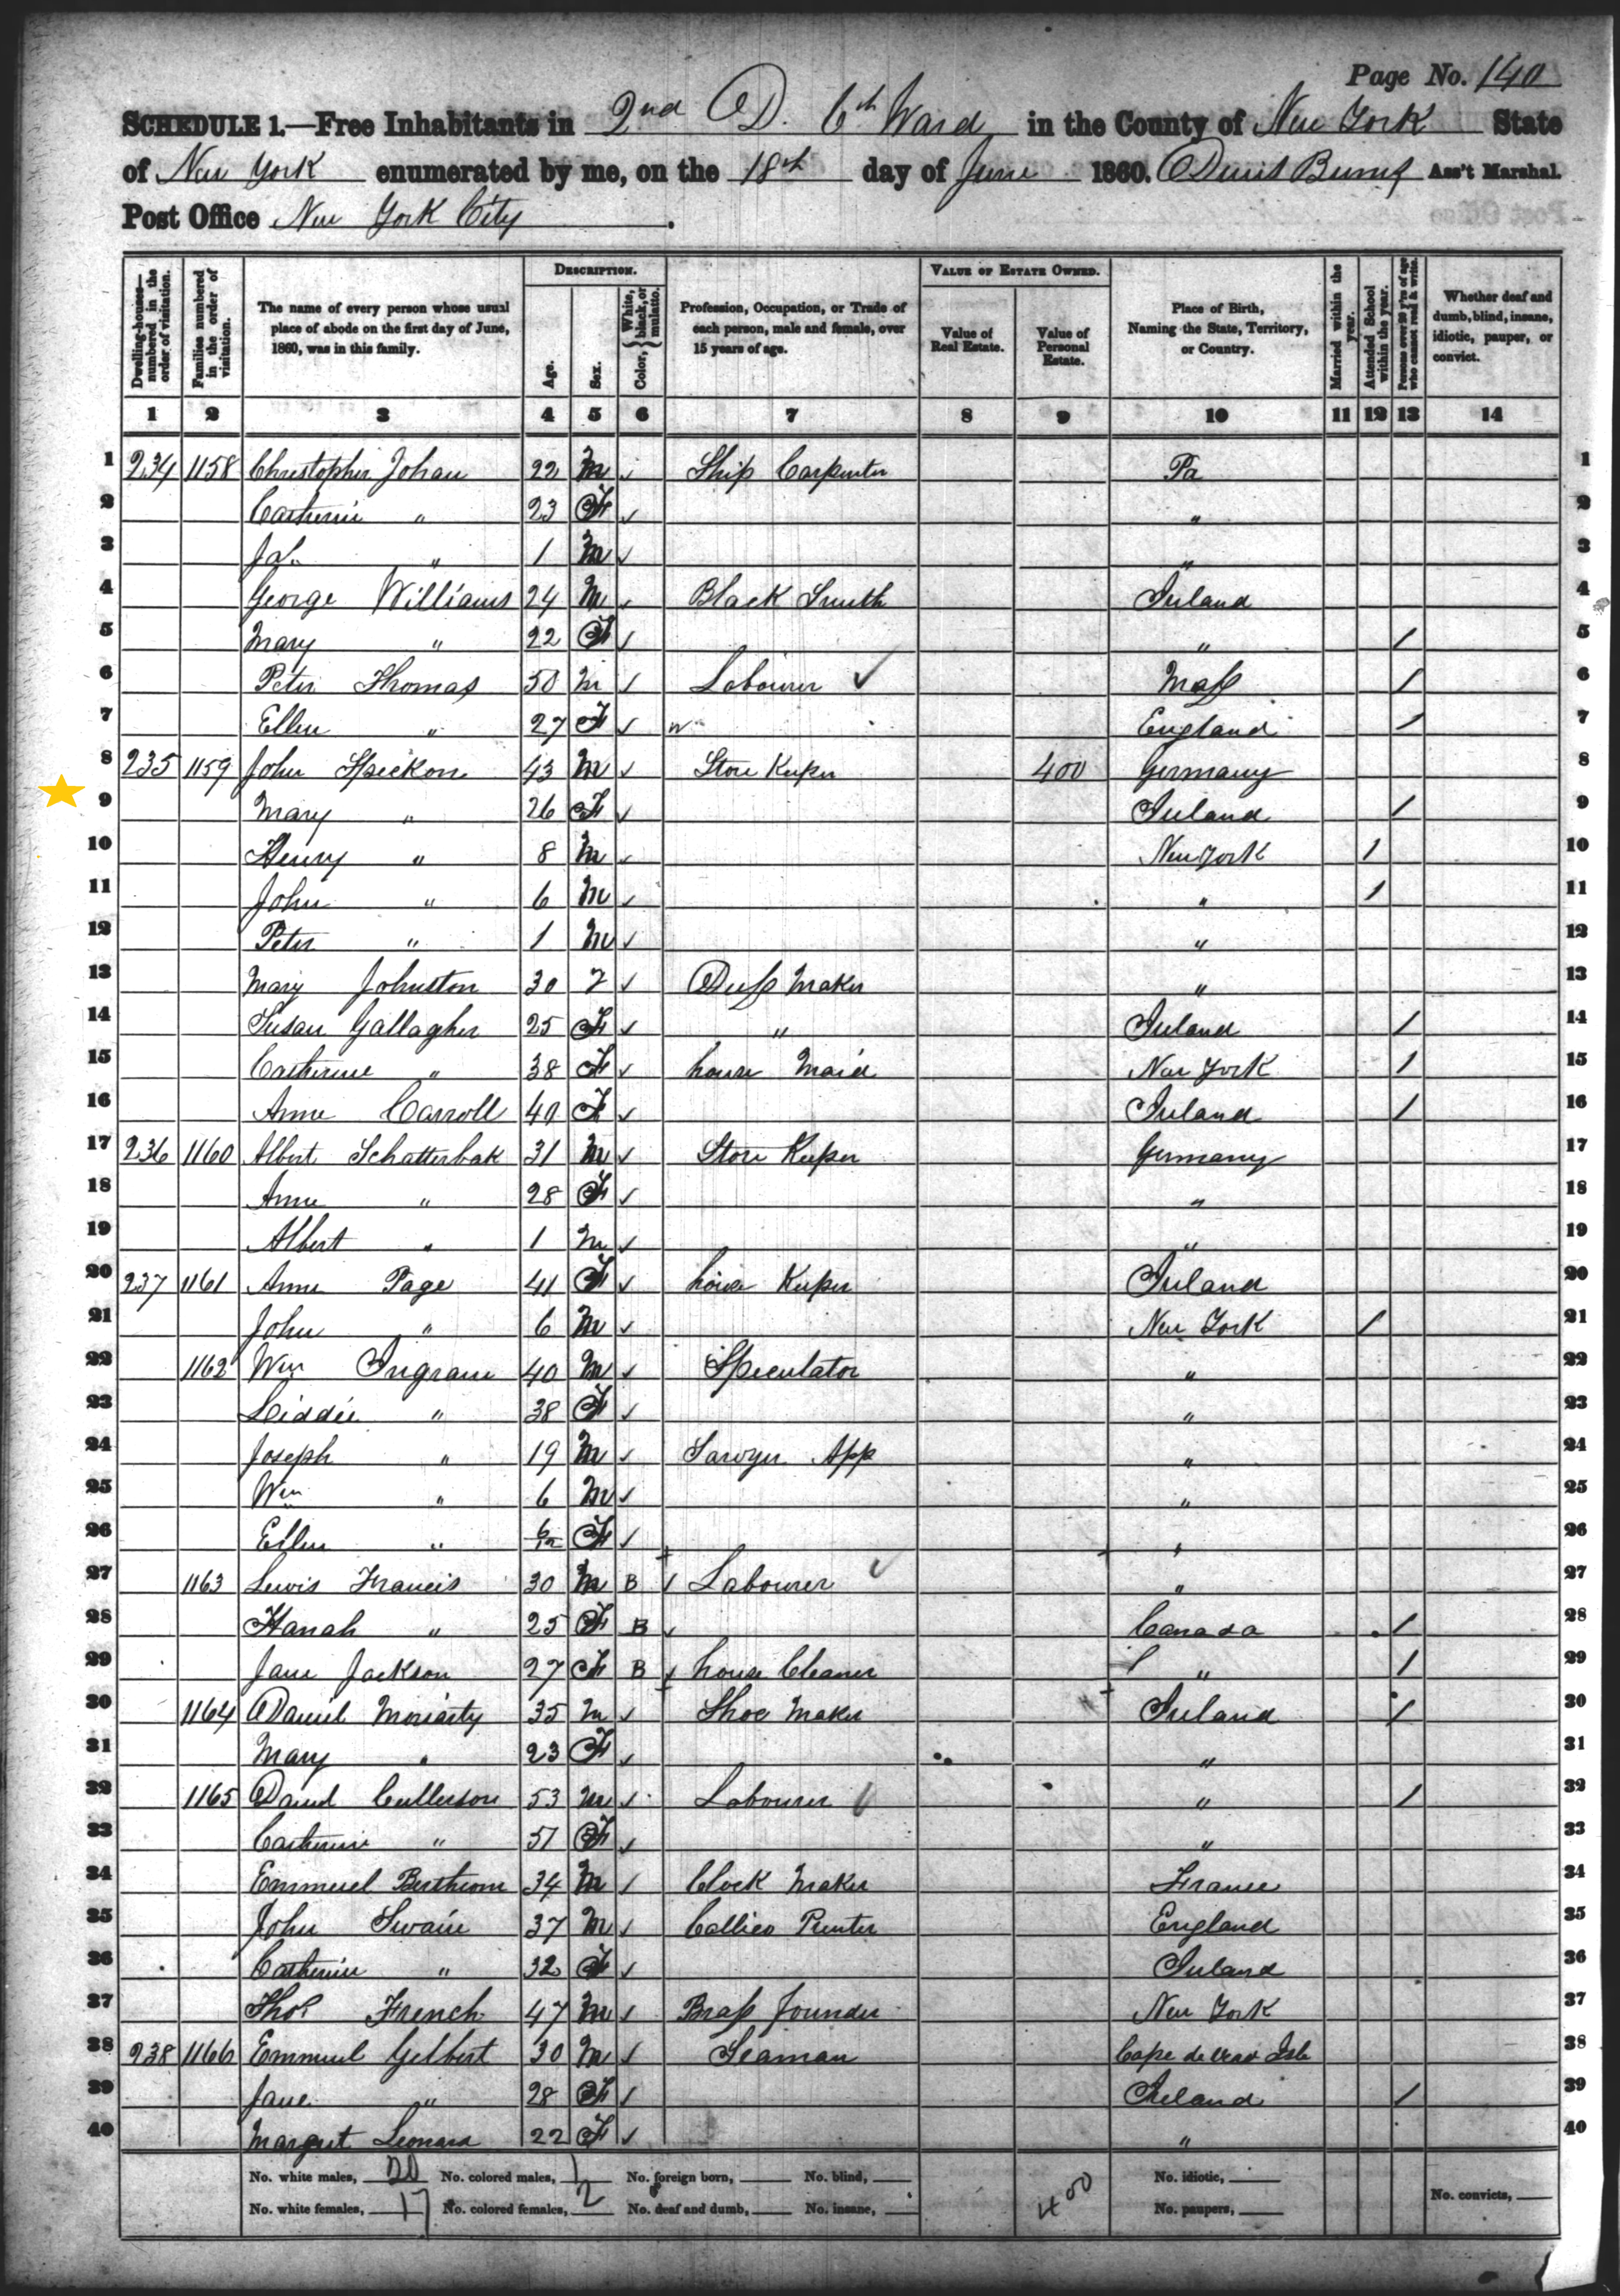 Page No. 140
SCHEDULE 1.—Free Inhabitants in 2nd D. 6th Ward in the County of New York State
of New York enumerated by me, on the 18th day of June 1860. Ass't Marshal.
Post Office New York City.
DESCRIPTION. VALUE OF ESTATE OWNED.
Dwelling-houses—numbered in the order of visitation. Families numbered in the order of visitation. The name of every person whose usual place of abode on the first day of June, 1860, was in this family. Age. Sex. Color, { White, black, or mulatto. Profession, Occupation, or Trade of each person, male and female, over 15 years of age. Value of Real Estate. Value of Personal Estate. Place of Birth, Naming the State, Territory, or Country. Married within the year. Attended School within the year. Persons over 20 y'rs of age who cannot read & write. Whether deaf and dumb, blind, insane, idiotic, pauper, or convict.
1 2 3 4 5 6 7 8 9 10 11 12 13 14
1 234 1158 Christopher Johan 22 M ✓ Ship Carpenter Pa 1
2 Catherine " 23 F ✓ " 2
3 " 1 M ✓ " 3
4 George Williams 24 M ✓ Black Smith Ireland 4
5 Mary " 22 F ✓ " / 5
6 Peter Thomas 50 M ✓ Labourer ✓ Mass / 6
7 Ellen " 27 F ✓ England / 7
8 235 1159 John Speckon 43 M ✓ Store Keeper 400 Germany 8
9 Mary " 26 F ✓ Ireland / 9
10 Henry " 8 M ✓ New York 1 10
11 John " 6 M ✓ " 1 11
12 Peter " 1 M ✓ " 12
13 Mary Johnston 30 F ✓ Dress Maker " 13
14 Susan Gallagher 25 F ✓ " Ireland / 14
15 Catherine " 38 F ✓ house Maid New York / 15
16 Anne Carroll 40 F ✓ Ireland / 16
17 236 1160 Albert Schatterbak 31 M ✓ Store Keeper Germany 17
18 Anne " 28 F ✓ " 18
19 Albert " 1 M ✓ " 19
20 237 1161 Anne Page 41 F ✓ house Keeper Ireland 20
21 John " 6 M ✓ New York / 21
22 1162 Wm Ingram 40 M ✓ Speculator " 22
23 Liddie " 38 F ✓ " 23
24 Joseph " 19 M ✓ Sawyer App " 24
25 Wm " 6 M ✓ " 25
26 Ellen " 6/12 F ✓ " 26
27 1163 Lewis Francis 30 M B / Labourer ✓ " 27
28 Hanah " 25 F B ✓ Canada / 28
29 Jane Jackson 27 F B house Cleaner " / 29
30 1164 Daniel Moriarty 35 M ✓ Shoe Maker Ireland / 30
31 Mary " 23 F ✓ " 31
32 1165 David Cullerson 53 M ✓ Labourer ✓ " / 32
33 Catherine " 51 F ✓ " 33
34 Emmuel Berthrom 34 M / Clock Maker France 34
35 John Swain 37 M ✓ Callico Printer England 35
36 Catherine " 32 F ✓ Ireland 36
37 Thos French 47 M ✓ Brass founder New York 37
38 238 1166 Emmuel Gelbert 30 M ✓ Seaman Cape de Verd Isle 38
39 Jane " 28 F / Ireland / 39
40 Margret Leonard 22 F ✓ " 40
No. white males, 20 No. colored males, 1 No. foreign born, No. blind, No. idiotic,
No. white females, 17 No. colored females, 2 No. deaf and dumb, No. insane, 400 No. paupers, No. convicts,